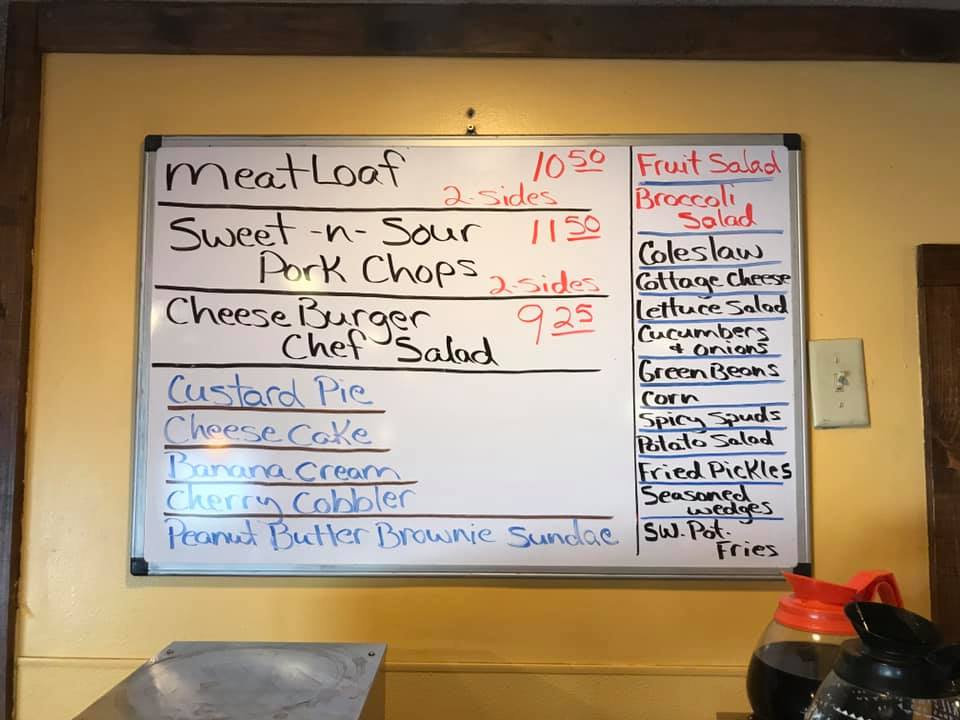 Meat Loaf 10 50
2-sides
Sweet -n- Sour 11 50
Pork Chops 2-sides
Cheese Burger 9 25
Chef Salad
Custard Pie
Cheese Cake
Banana Cream
Cherry Cobbler
Peanut Butter Brownie Sundae
Fruit Salad
Broccoli
Salad
Coleslaw
Cottage Cheese
Lettuce Salad
Cucumbers
+ onions
Green Beans
Corn
Spicy Spuds
Potato Salad
Fried Pickles
Seasoned
wedges
Sw. Pot.
Fries